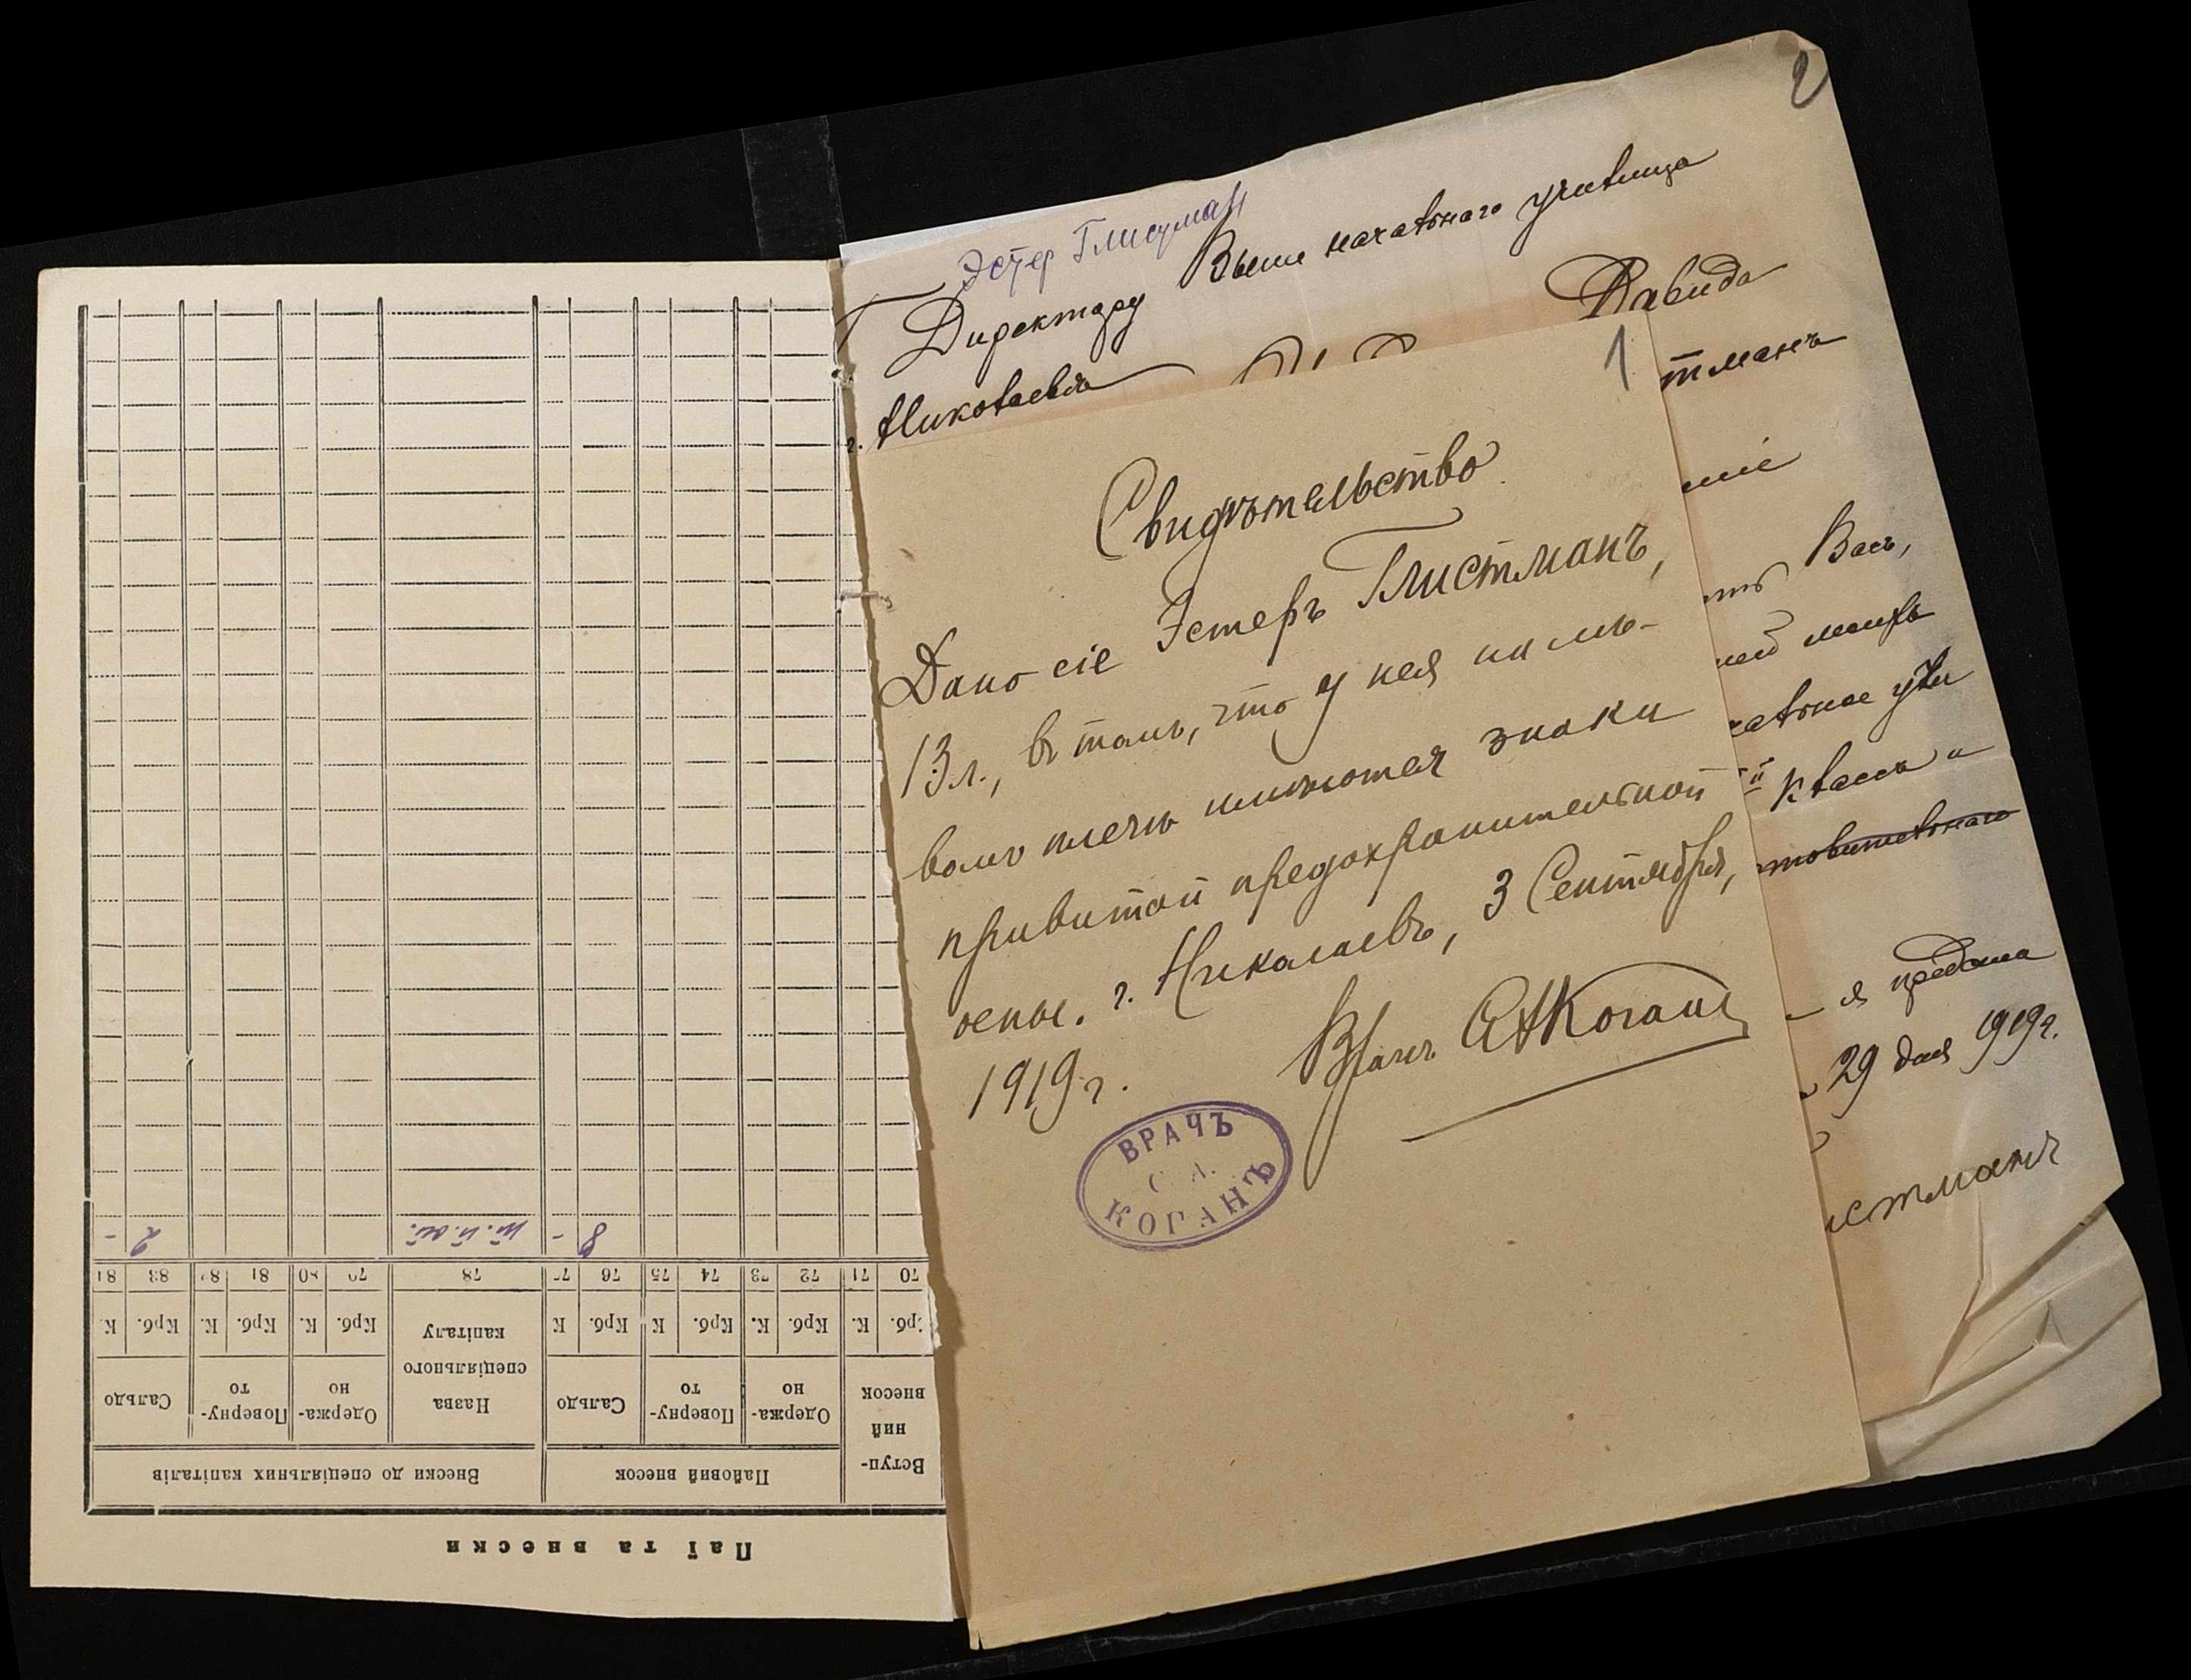 2
Эстер Глистман
Г Директору Высше начальнаго училища
г. Николаева
Давида
тманъ
1
ніе
Васъ,
ней
чальное учи
II классъ и
товительнаго
я
29 дня 1919г.
истманъ
Свидѣтельство
Дано сіе Эстеръ Глистманъ,
13 л., въ томъ, что у нея на лѣ-
вомъ плечѣ имѣются знаки
привитой предохранительной
оспы. г. Николаевъ, 3 Сентября,
1919 г.
Врачъ САКоганъ
ВРАЧЪ
С. А.
КОГАНЪ
Паї та внески
Вступ-
ний
внесок
Пайовий внесок
Внески до спеціяльних капіталів
Одержа-
но
Поверну-
то
Сальдо
Назва
спеціяльного
капіталу
Одержа-
но
Поверну-
то
Сальдо
Крб. К. Крб. К. Крб. К Крб. К Крб. К. Крб. К. Крб. К.
70 71 72 73 74 75 76 77 78 79 80 81 82 83 84
8 -
2 -